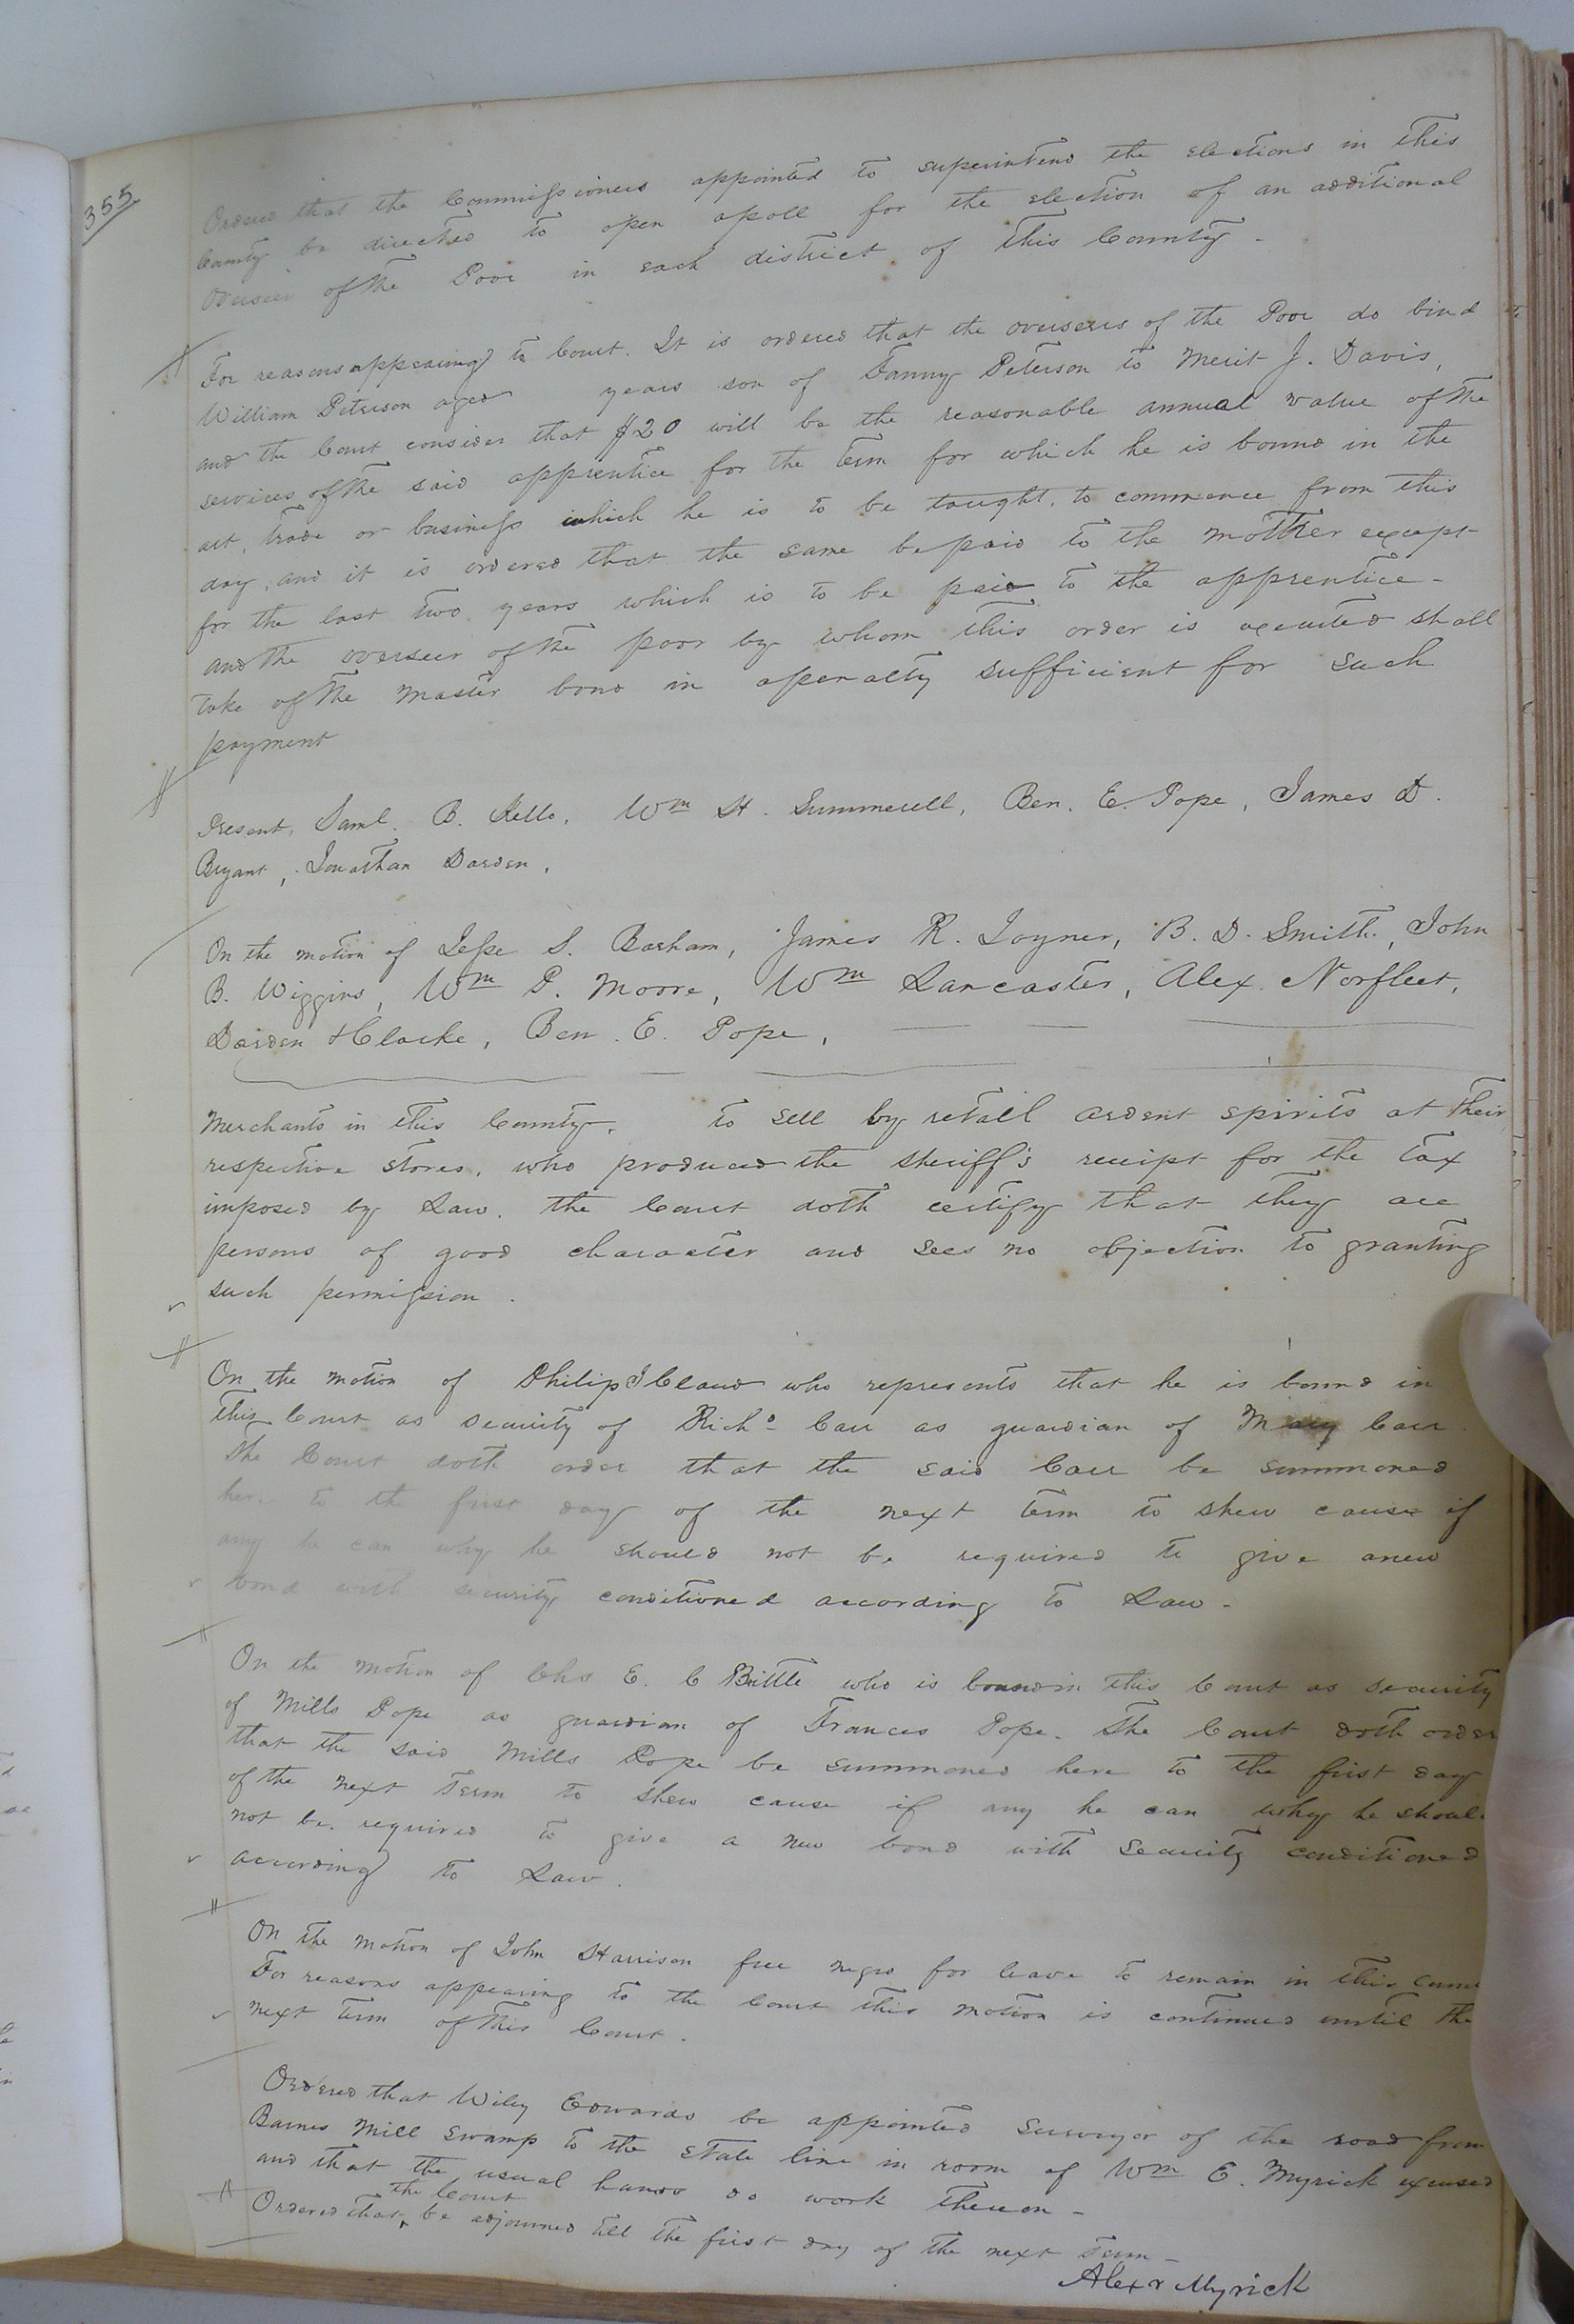 355
Ordered that the Commissioners appointed to superintend the elections in this
County be directed to open a poll for the election of an additional
Overseer of the Poor in each district of this County -
For reasons appearing to Court. It is ordered that the overseers of the Poor do bind
William Peterson aged years son of Fanny Peterson to Merit J. Davis,
and the Court consider that $20 will be the reasonable annual value of the
services of the said apprentice for the term for which he is bound in the
art, trade or business which he is to be taught, to commence from this
day, and it is ordered that the same be paid to the mother except
for the last two years which is to be paid to the apprentice -
and the overseer of the poor by whom this order is executed shall
take of the master bond in a penalty sufficient for such
payment
Present, Saml. B. Kello, Wm H. Summerell, Ben. E. Pope, James D.
Bryant, Jonathan Darden,
On the motion of Jesse S. Barham, James R. Joyner, B. D. Smith, John
B. Wiggins, Wm P. Moore, Wm Lancaster, Alex. Norfleet,
Darden & Clarke, Ben. E. Pope,
Merchants in this County, to sell by retail ardent spirits at their
respective stores, who produced the sheriff's receipt for the tax
imposed by Law. the Court doth certify that they are
persons of good character and sees no objection to granting
such permission.
On the motion of Philip J Claud who represents that he is bound in
this Court as security of Richd Carr as guardian of Mary Carr.
The Court doth order that the said Carr be summoned
here to the first day of the next term to shew cause if
any he can why he should not be required to give a new
bond with security conditioned according to Law -
On the motion of Chs E. C Brittle who is bound in this Court as security
of Mills Pope as guardian of Frances Pope. The Court doth order
that the said Mills Pope be summoned here to the first day
of the next Term to shew cause if any he can why he shoul
not be required to give a new bond with security conditioned
according to Law.
On the motion of John Harrison free negro for leave to remain in this
For reasons appearing to the Court this motion is continued until the
next term of this Court.
Ordered that Wiley Edwards be appointed surveyor of the road from
Barnes Mill swamp to the State line in room of Wm E. Myrick excused
and that the usual hands do work thereon -
the Court
Ordered that be adjourned till the first day of the next Term -
Alexr Myrick